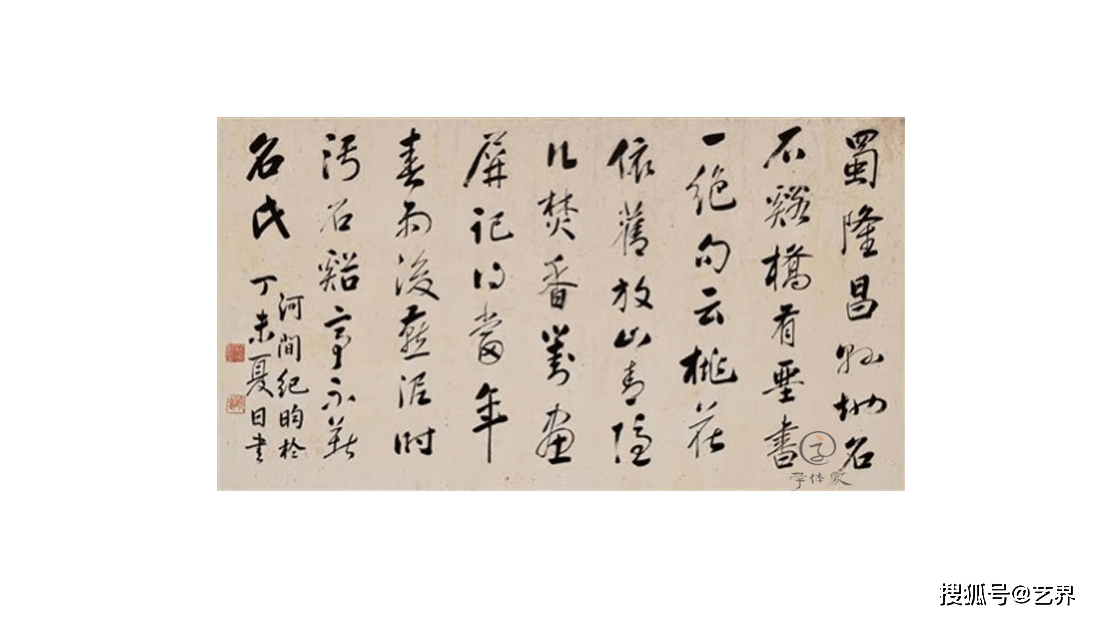 蜀隆昌縣地名
石谿橋有堊書
一絕句云桃花
依舊放山青隱
几焚香對畫
屏記得當年
春雨後燕泥時
污石谿亭不著
名氏
河間紀昀於
丁未夏日書
字体家
搜狐号@艺界